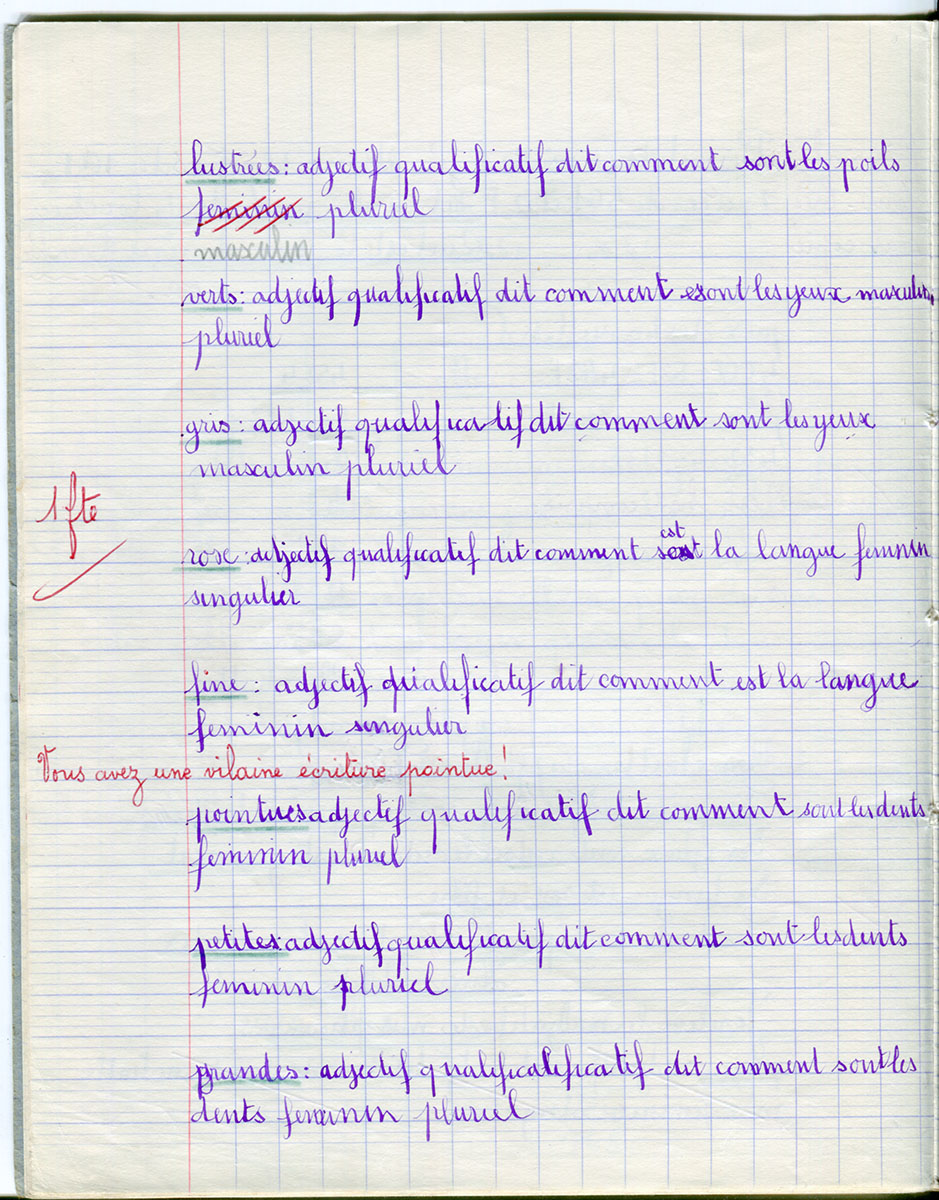 lustrées : adjectif qualificatif dit comment sont les poils
feminin pluriel
masculin
verts : adjectif qualificatif dit comment sont les yeux masculin
pluriel
gris : adjectif qualificatif dit comment sont les yeux
masculin pluriel
1 fte
est
rose : adjectif qualificatif dit comment sont la langue feminin
singulier
fine : adjectif qualificatif dit comment est la langue
feminin singulier
Vous avez une vilaine écriture pointue !
pointues adjectif qualificatif dit comment sont les dents
feminin pluriel
petites adjectif qualificatif dit comment sont les dents
feminin pluriel
grandes : adjectif qualificalificatif dit comment sont les
dents feminin pluriel